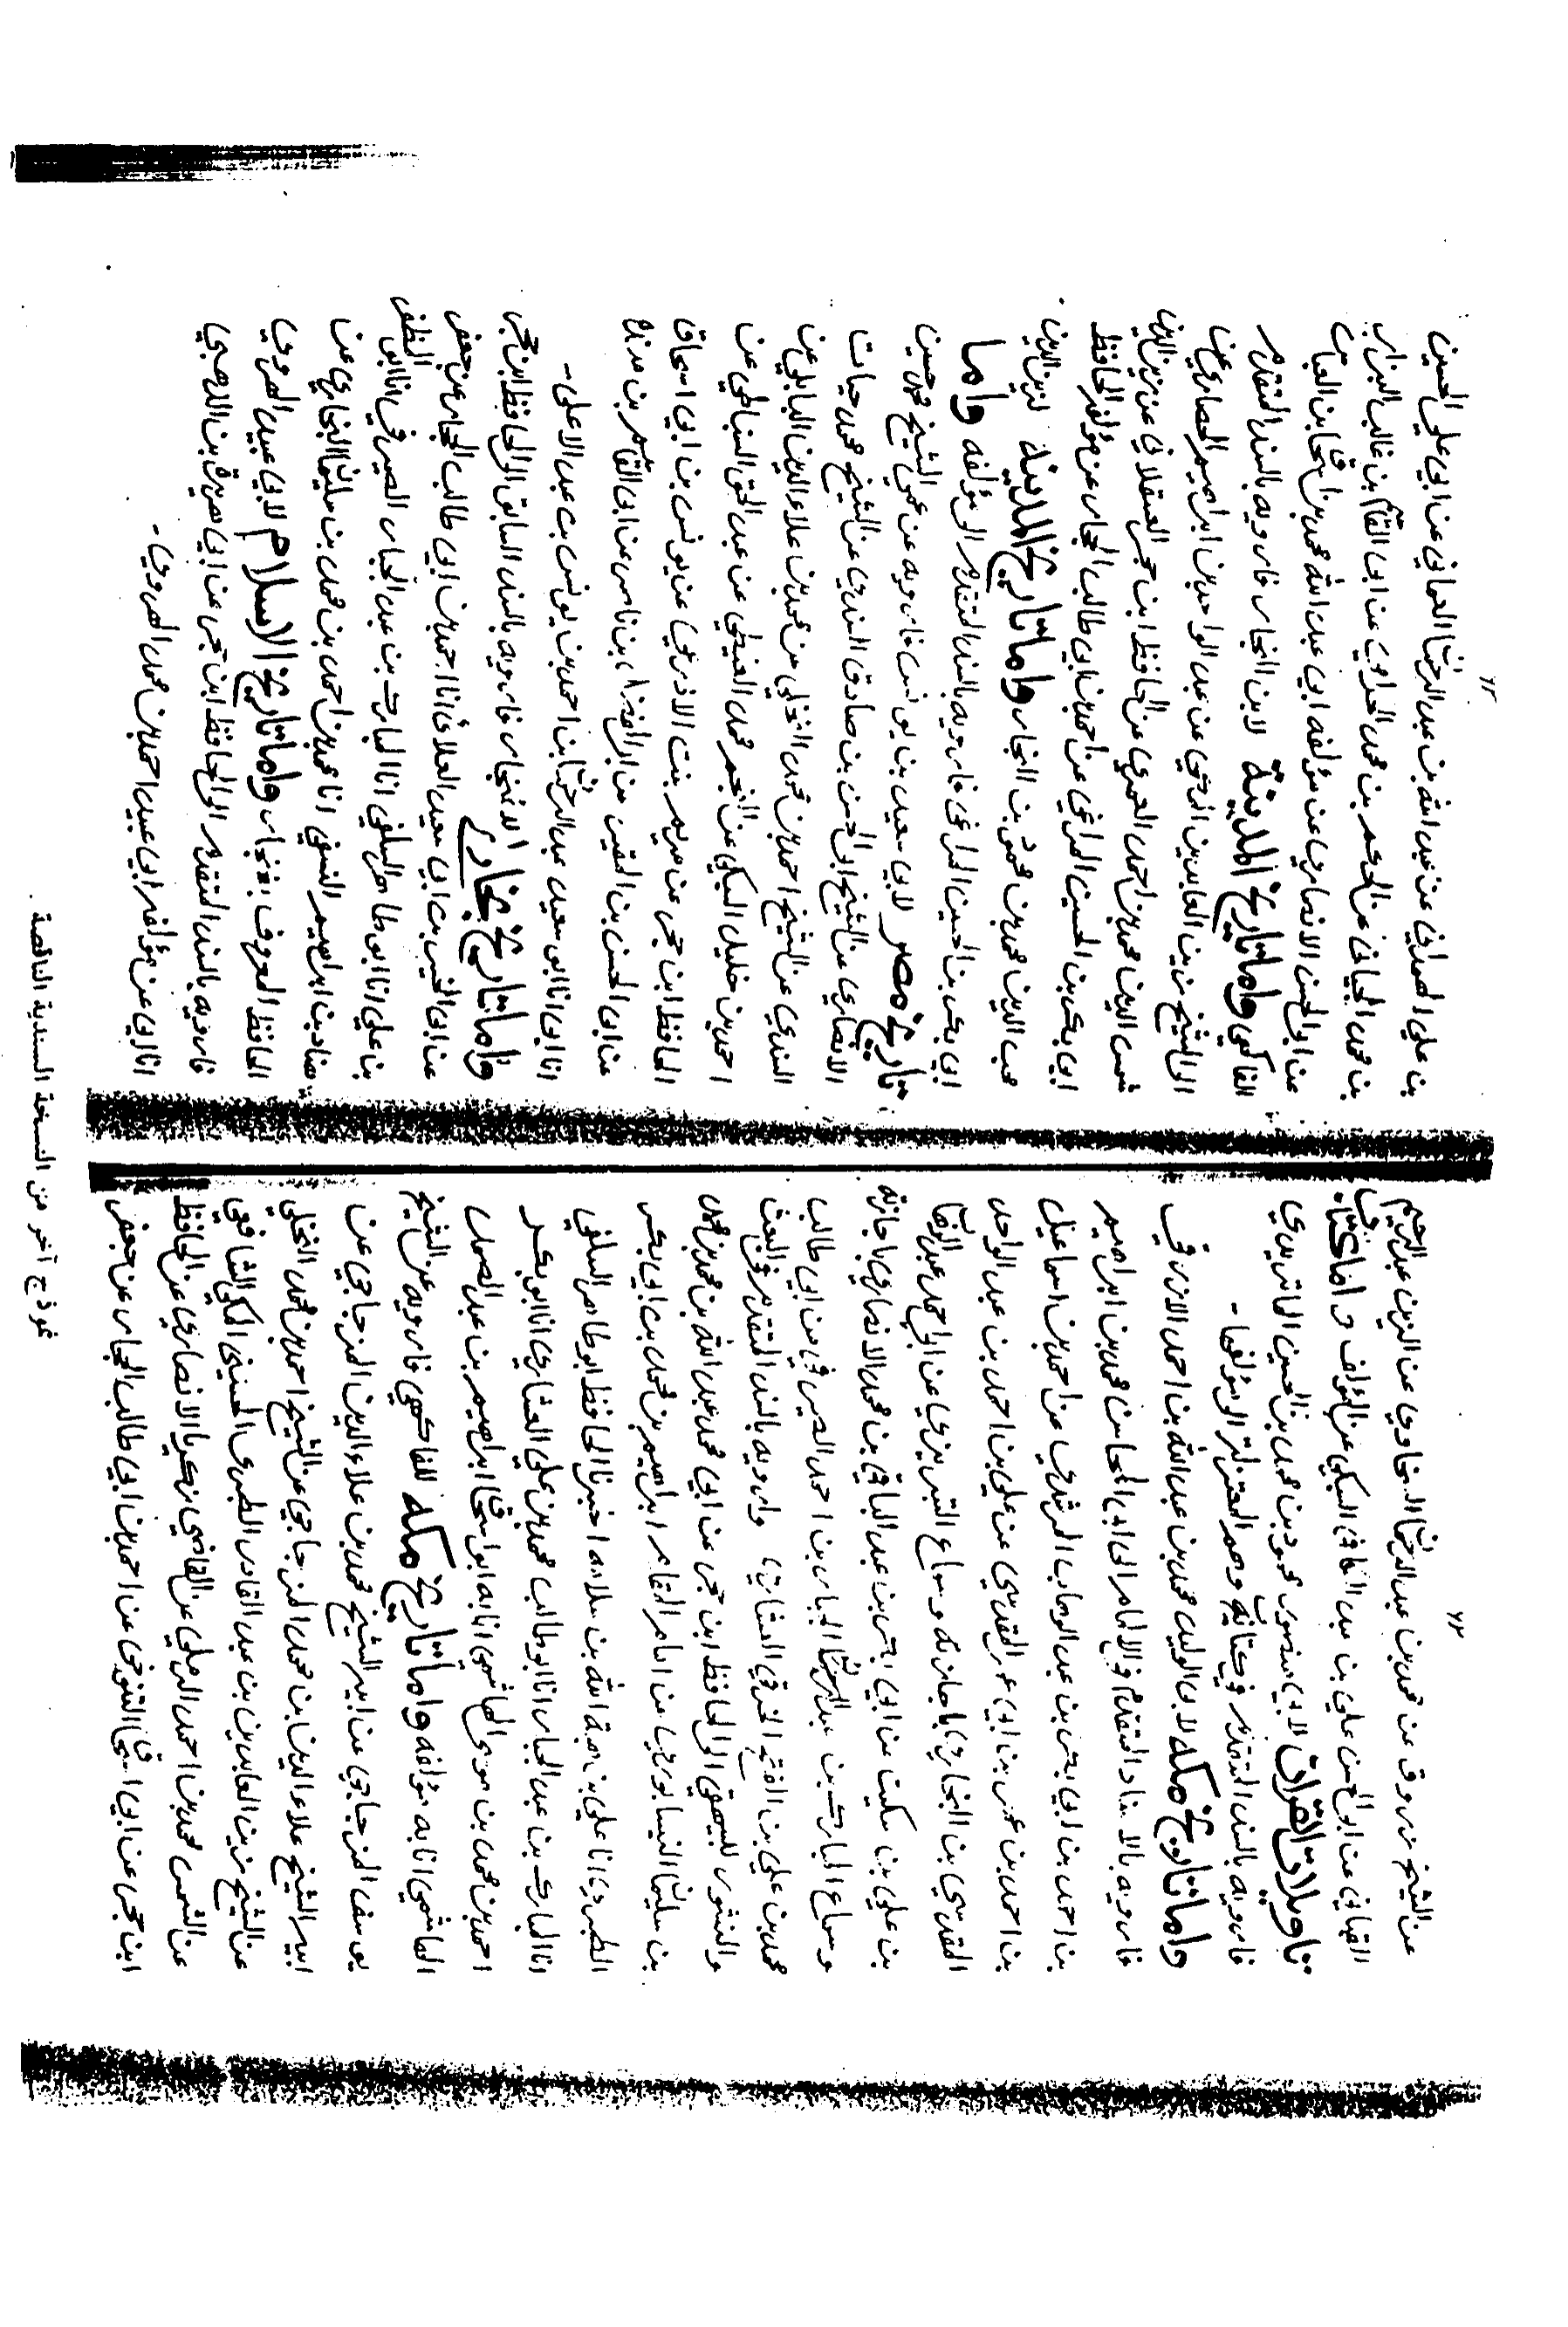 ٦٣
عن الشيخ زروق عن محمد بن عبد الرحمن السخاوي عن الزين عبد الرحيم
القبابي عن ابي الحسن علي بن عبد الكافي السبكي عن المؤلف واما كتاب
تاويلات القرآن لابي منصور محمود بن محمد بن الحسين الماتريدي
فارويه بالسند المتقدم في كتابه وهم المعتزلة الى مؤلفها -
واما تاريخ مكه لابي الوليد محمد بن عبد الله بن احمد الازرقي
فارويه بالاسناد المتقدم في الالمام الى ابي المحاسن محمد بن ابراهيم
بن احمد بن ابي بكر بن عبد الوهاب المرشدي عن احمد بن اسماعيل
بن احمد بن عمر بن ابي عمر المقدسي عن علي بن احمد بن عبد الواحد
المقدسي بن البخاري باجازته وسماع التبريزي عن ابي احمد عبد الوهاب
بن علي بن سكينة عن ابي بكر بن عبد الباقي بن محمد الانصاري باجازته
وسماع المبارك بن احمد الصيرفي من ابي طالب
محمد بن علي بن الفتح الحربي العشاري وارويه بالسند المتقدم في البعث
والنشور للبيهقي الى الحافظ ابن حجر عن ابي محمد عبد الله بن محمد بن محمد
بن سليمان النيسابوري عن امام المقام ابراهيم بن محمد بن ابي بكر
الطبري انا علي بن هبة الله بن سلامه اخبرنا الحافظ ابو طاهر السلفي
انا المبارك بن عبد الجبار انا ابو طالب محمد بن علي العشاري انا ابو بكر
احمد بن محمد بن موسى الهاشمي انا به ابو اسحاق ابراهيم بن عبد الصمد
الهاشمي انا به مؤلفه واما تاريخ مكه للفاكهي فارويه عن الشيخ
يوسف المزجاجي عن ابيه الشيخ محمد بن علاء الدين المزجاجي عن
ابيه الشيخ علاء الدين بن محمد المزجاجي عن الشيخ احمد بن محمد النخلي
عن الشيخ زين العابدين بن عبد القادر الطبري الحسيني المكي الشافعي
عن الشمس محمد بن احمد الرملي عن القاضي زكريا الانصاري عن الحافظ
ابن حجر عن ابي اسحاق التنوخي عن احمد بن ابي طالب الحجار عن جعفر
بن علي الهمداني عن عبد الله بن عبد الرحمن العثماني عن ابي علي الحسين
بن محمد الجياني عن الحكم بن محمد الجذامي عن ابي القاسم بن غالب البزار
عن ابي الحسن الانصاري عن مؤلفه ابي عبد الله محمد بن اسحاق بن العباس
الفاكهي واما تاريخ المدينة لابن النجار فارويه بالسند المتقدم
الى الشيخ زين العابدين عن عبد الواحد بن ابراهيم الحصاري عن
شمس الدين محمد بن احمد العمري عن الحافظ ابن حجر العسقلاني عن زين الدين
ابي بكر بن الحسين المراغي عن احمد بن ابي طالب الحجار عن مؤلفه الحافظ
محب الدين محمد بن محمود بن النجار واما تاريخ المدينه لزين الدين
ابي بكر بن الحسين المراغي فارويه بالسند المتقدم الى مؤلفه واما
تاريخ مصر لابي سعيد بن يونس فارويه عن عمي الشيخ محمد حسين
الانصاري عن الشيخ ابي الحسن بن صادق السندي عن الشيخ محمد حيات
السندي عن الشيخ احمد بن محمد النخلي عن محمد بن علاء الدين البابلي عن
احمد بن خليل السبكي عن النجم محمد الغيطي عن عبد الحق السنباطي عن
الحافظ ابن حجر عن مريم بنت الاذرعي عن يونس بن ابي اسحاق
عن ابي الحسن بن المقير عن ابي الفضل بن ناصر عن ابي القاسم بن منده
انا ابي انا ابو سعيد عبد الرحمن بن احمد بن يونس بن عبد الاعلى -
واما تاريخ بخارى لغنجار فارويه بالسند السابق الى الحافظ ابن حجر
عن ابي الخير بن ابي سعيد العلائي انا احمد بن ابي طالب الحجار عن جعفر
بن علي انا ابو طاهر السلفي انا المبارك بن عبد الجبار الصيرفي انا ابو المظفر
هناد بن ابراهيم النسفي انا محمد بن احمد بن محمد بن سليمان البخاري عن
الحافظ المعروف بغنجار واما تاريخ الاسلام لابي عبيد الهروي
فارويه بالسند المتقدم الى الحافظ ابن حجر عن ابي هريرة بن الذهبي
انا ابي عن مؤلفه ابي عبيد احمد بن محمد الهروي -
نموذج آخر من النسخة السندية الناقصة